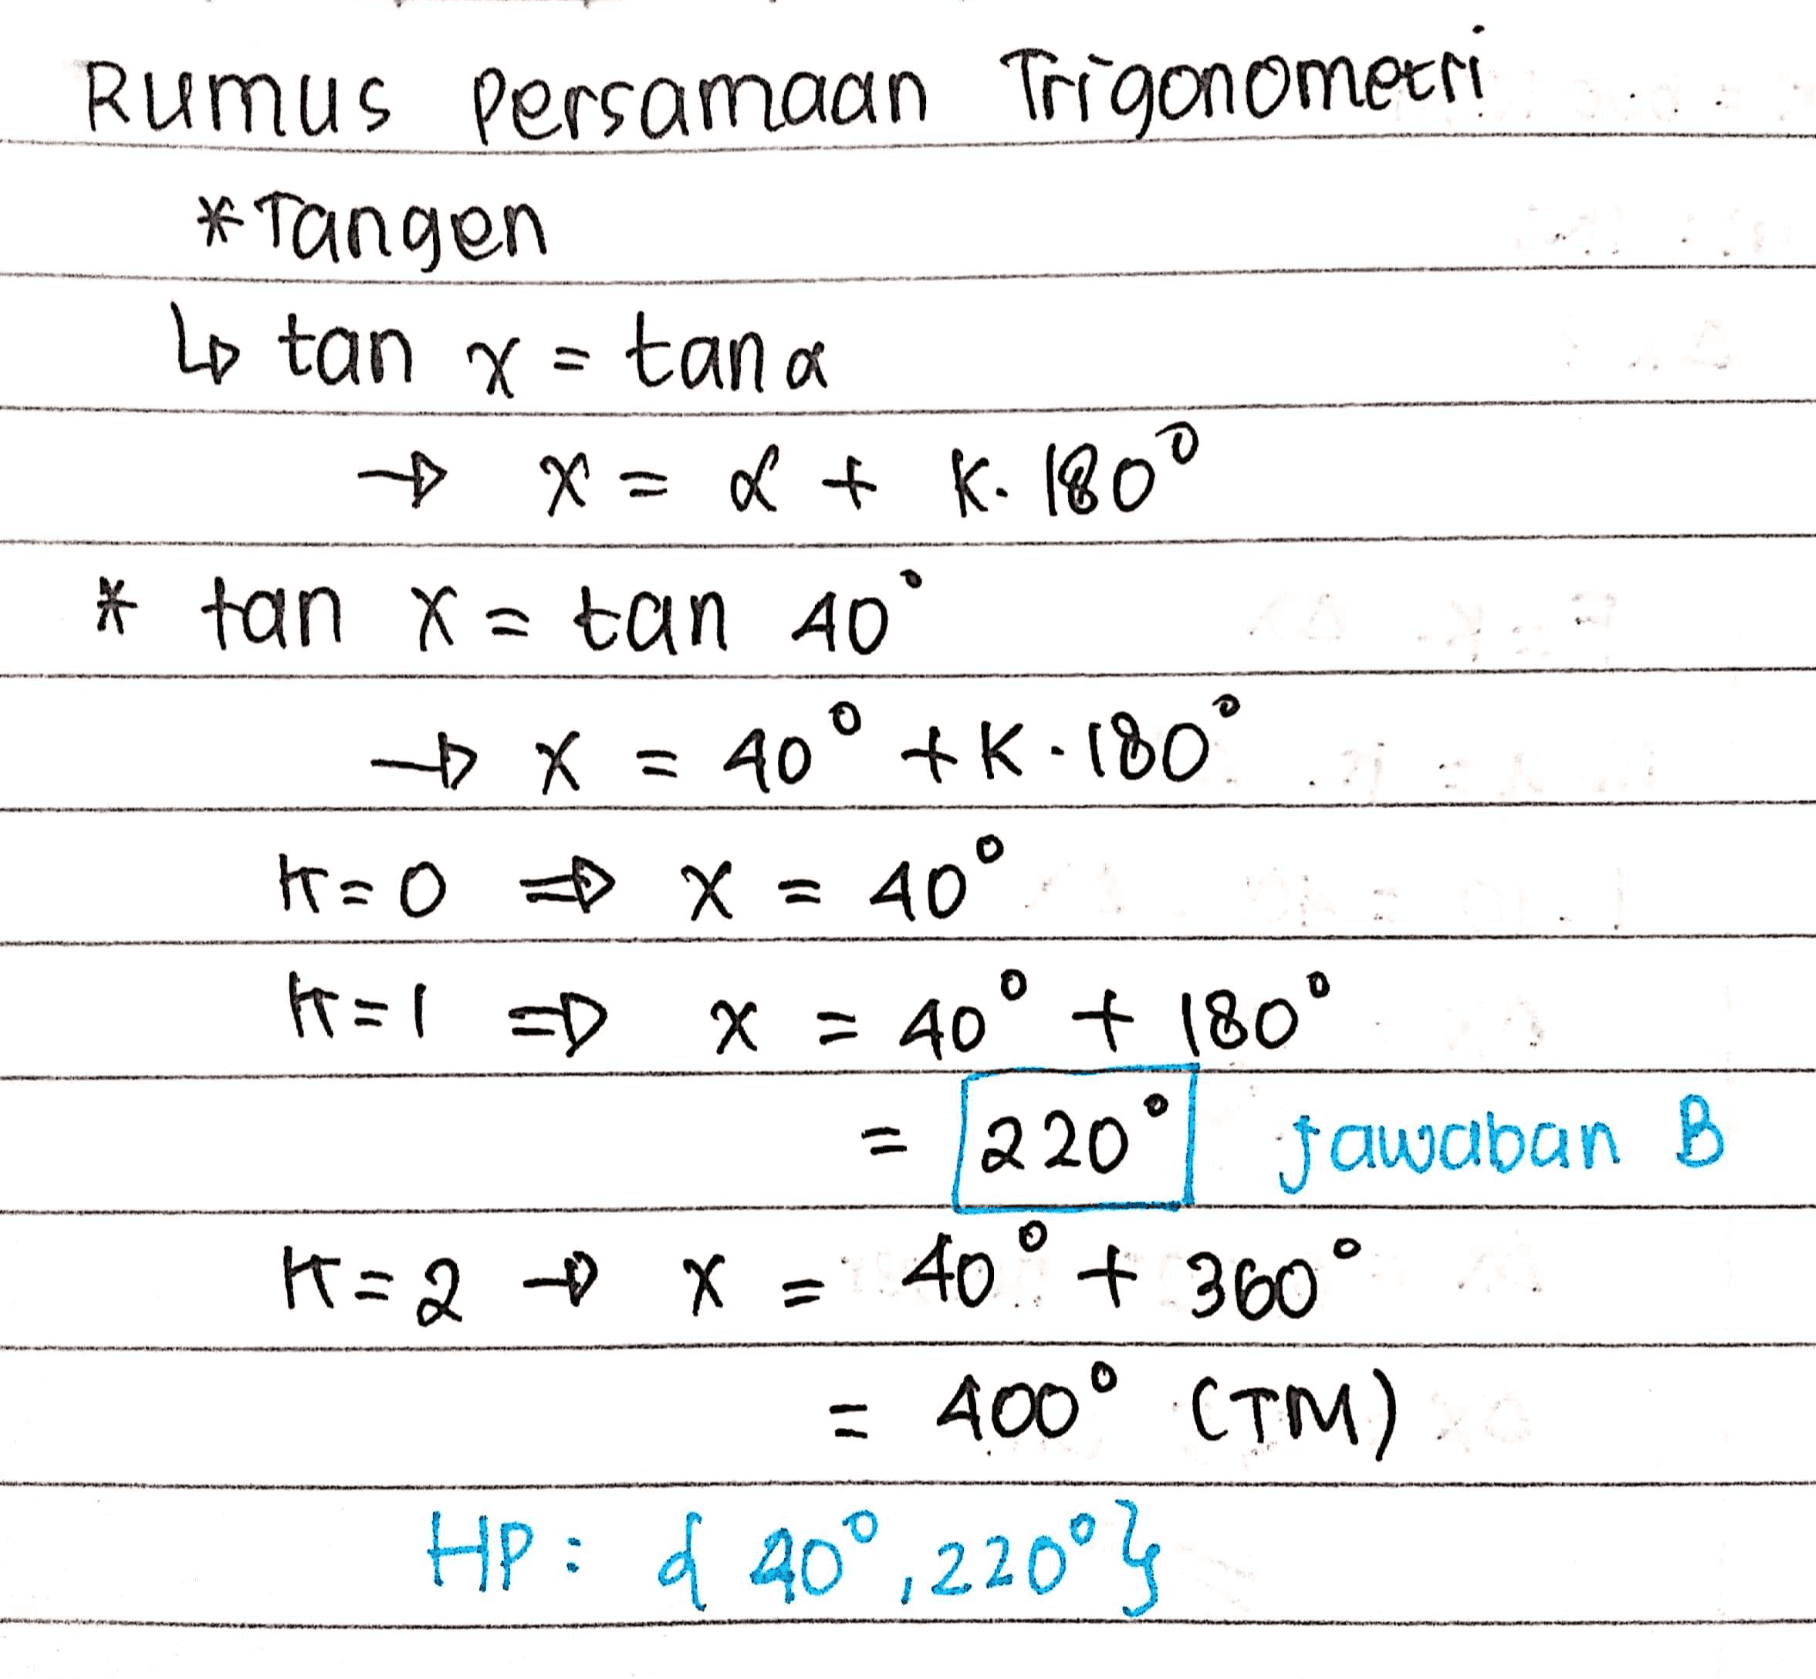 Rumus Persamaan Trigonometri
*Tangen
↳ tan x = tan α
→ x = α + K. 180°
* tan x = tan 40°
→ x = 40° + K · 180°
K=0 ⇒ x = 40°
K=1 ⇒ x = 40° + 180°
= 220° Jawaban B
K=2 → x = 40° + 360°
= 400° (TM)
HP : { 40°, 220° }